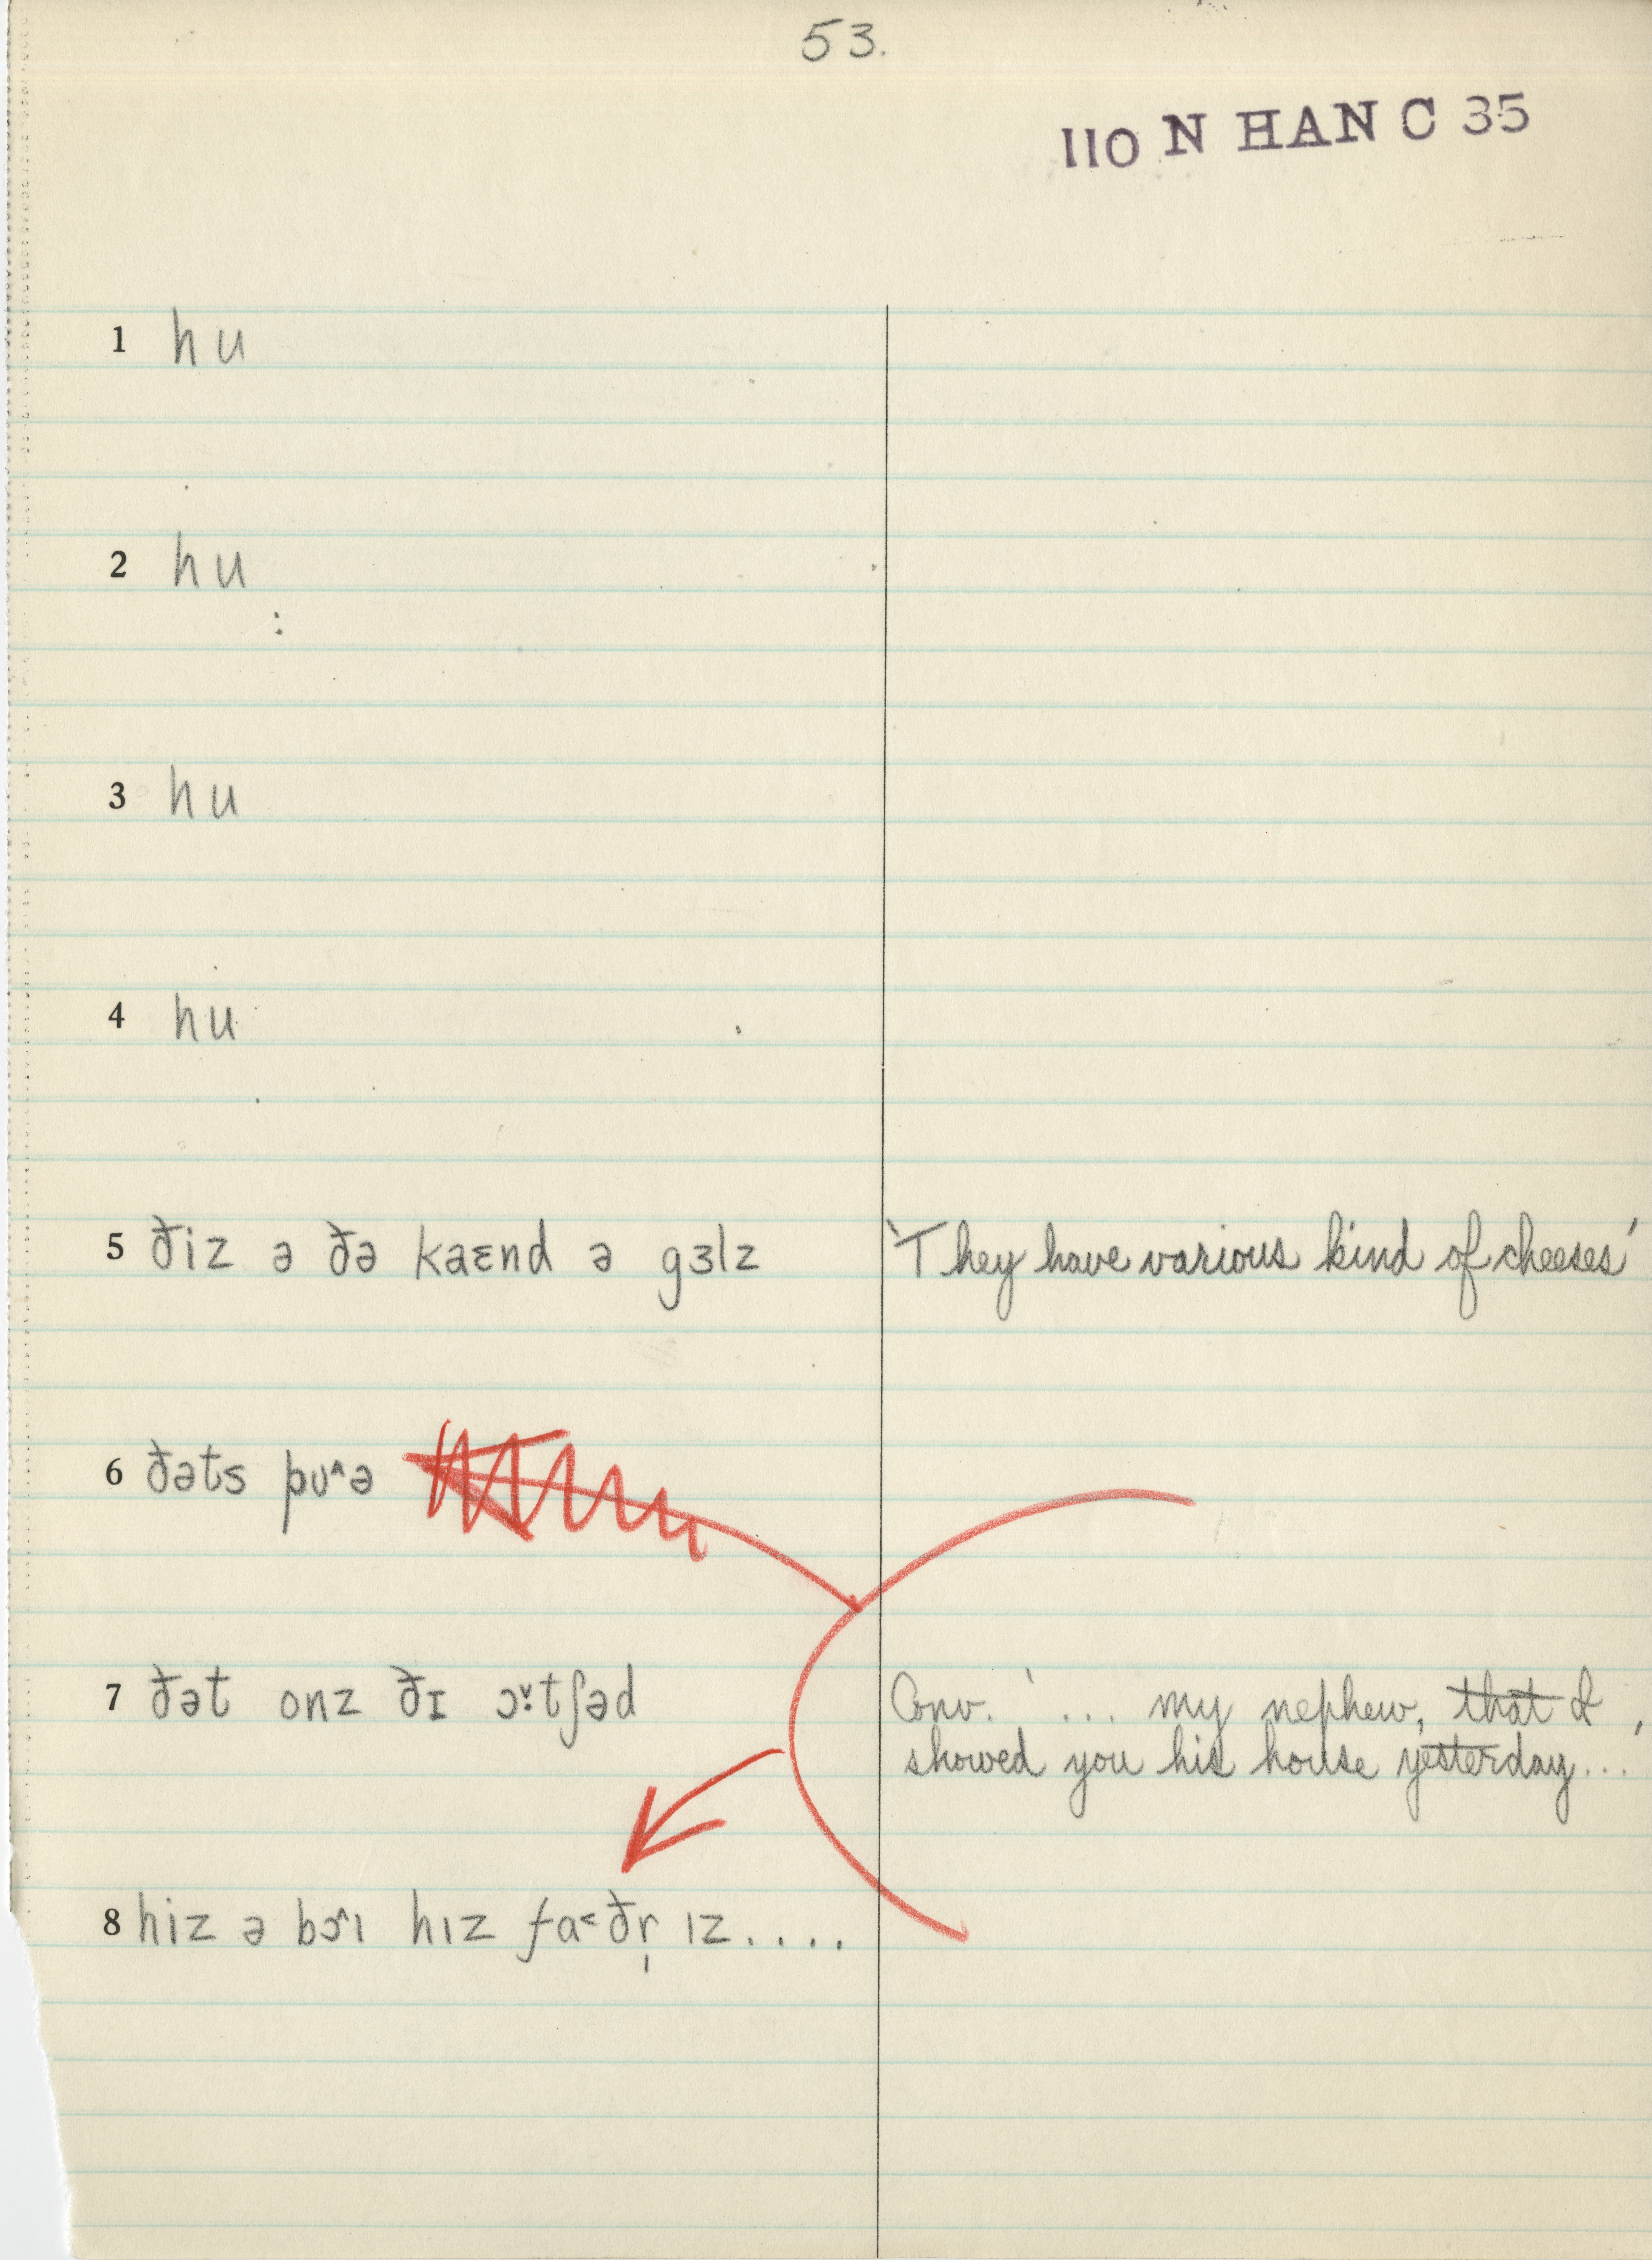 53.
110 N HAN C 35
1 hu
2 hu
3 hu
4 hu
5 ðiz ə ðə kaɛnd ə gɜlz 'They have various kind of cheeses'
6 ðəts pʊ˄ə
7 ðət onz ðɪ ɔ˅:tʃəd Conv. '... my nephew, that I
showed you his house yesterday...'
8 hiz ə bɔ˄ı hız fa˂ðr̩ ız....